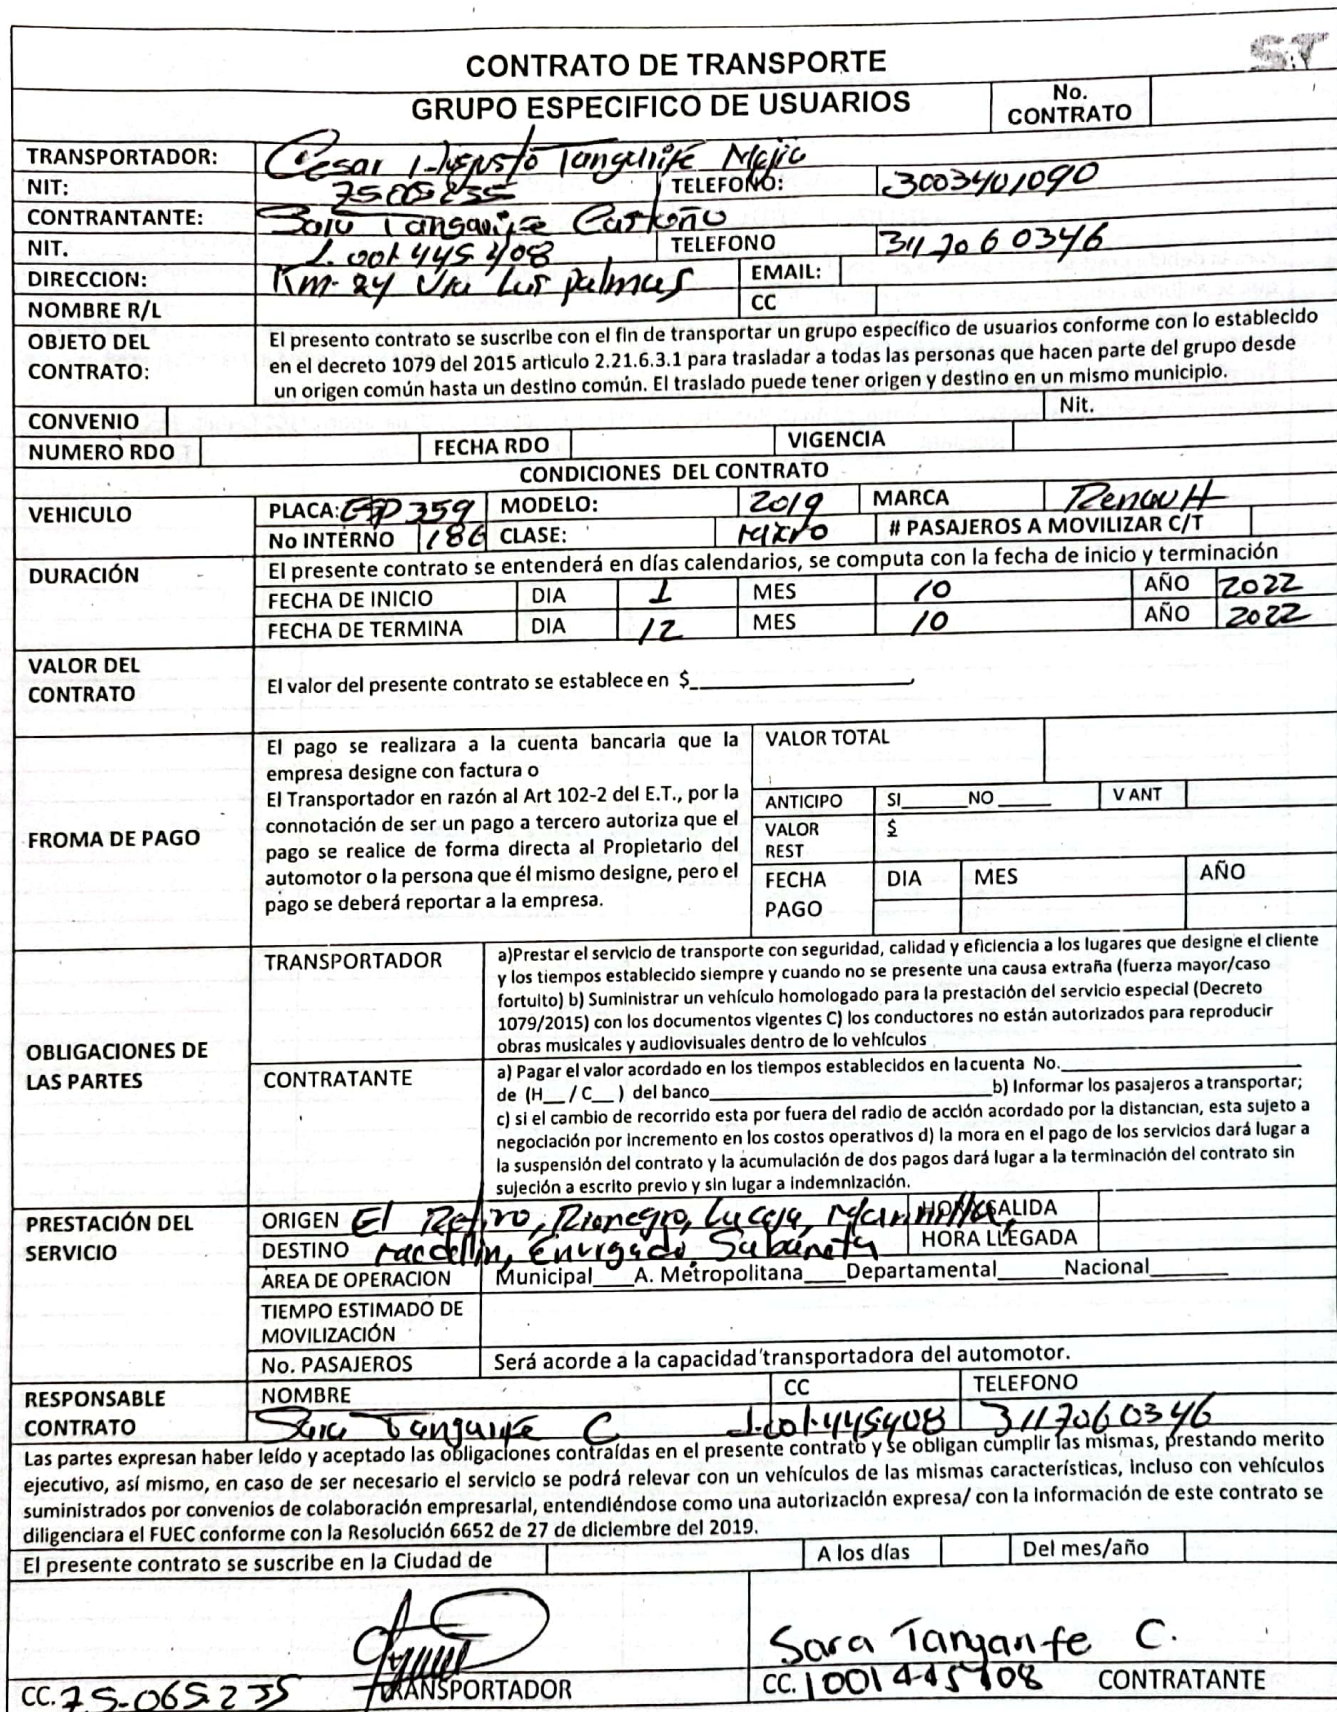 CONTRATO DE TRANSPORTE
GRUPO ESPECIFICO DE USUARIOS No. CONTRATO
TRANSPORTADOR: Cesar Augusto Tanganife Mejia
NIT: TELEFONO: 3003401090
CONTRANTANTE: Sara Tanganife Castaño
NIT. 1.001.445.408 TELEFONO 3117060346
DIRECCION: Km-24 Via Las palmas EMAIL:
NOMBRE R/L CC
OBJETO DEL CONTRATO:
El presento contrato se suscribe con el fin de transportar un grupo específico de usuarios conforme con lo establecido
en el decreto 1079 del 2015 articulo 2.21.6.3.1 para trasladar a todas las personas que hacen parte del grupo desde
un origen común hasta un destino común. El traslado puede tener origen y destino en un mismo municipio.
CONVENIO Nit.
NUMERO RDO FECHA RDO VIGENCIA
CONDICIONES DEL CONTRATO
VEHICULO PLACA: 359 MODELO: 2019 MARCA Renault
No INTERNO 186 CLASE: Micro # PASAJEROS A MOVILIZAR C/T
DURACIÓN El presente contrato se entenderá en días calendarios, se computa con la fecha de inicio y terminación
FECHA DE INICIO DIA 1 MES 10 AÑO 2022
FECHA DE TERMINA DIA 12 MES 10 AÑO 2022
VALOR DEL CONTRATO
El valor del presente contrato se establece en $_______________
FROMA DE PAGO
El pago se realizara a la cuenta bancaria que la
empresa designe con factura o
El Transportador en razón al Art 102-2 del E.T., por la
connotación de ser un pago a tercero autoriza que el
pago se realice de forma directa al Propietario del
automotor o la persona que él mismo designe, pero el
pago se deberá reportar a la empresa.
VALOR TOTAL
ANTICIPO SI_____NO _____ V ANT
VALOR REST $
FECHA PAGO DIA MES AÑO
OBLIGACIONES DE LAS PARTES
TRANSPORTADOR
a)Prestar el servicio de transporte con seguridad, calidad y eficiencia a los lugares que designe el cliente
y los tiempos establecido siempre y cuando no se presente una causa extraña (fuerza mayor/caso
fortuito) b) Suministrar un vehículo homologado para la prestación del servicio especial (Decreto
1079/2015) con los documentos vigentes C) los conductores no están autorizados para reproducir
obras musicales y audiovisuales dentro de lo vehículos
CONTRATANTE
a) Pagar el valor acordado en los tiempos establecidos en la cuenta No._______________
de (H__ / C__ ) del banco_______________b) Informar los pasajeros a transportar;
c) si el cambio de recorrido esta por fuera del radio de acción acordado por la distancian, esta sujeto a
negociación por incremento en los costos operativos d) la mora en el pago de los servicios dará lugar a
la suspensión del contrato y la acumulación de dos pagos dará lugar a la terminación del contrato sin
sujeción a escrito previo y sin lugar a indemnización.
PRESTACIÓN DEL SERVICIO
ORIGEN El Retiro, Rionegro, La ceja, Marinilla, HORA SALIDA
DESTINO medellin, Envigado, Sabaneta HORA LLEGADA
AREA DE OPERACION Municipal___A. Metropolitana___Departamental_____Nacional______
TIEMPO ESTIMADO DE MOVILIZACIÓN
No. PASAJEROS Será acorde a la capacidad transportadora del automotor.
RESPONSABLE CONTRATO
NOMBRE CC TELEFONO
Sara Tanganife C 1.001.445408 3117060346
Las partes expresan haber leído y aceptado las obligaciones contraídas en el presente contrato y se obligan cumplir las mismas, prestando merito
ejecutivo, así mismo, en caso de ser necesario el servicio se podrá relevar con un vehículos de las mismas características, incluso con vehículos
suministrados por convenios de colaboración empresarial, entendiéndose como una autorización expresa/ con la información de este contrato se
diligenciara el FUEC conforme con la Resolución 6652 de 27 de diciembre del 2019.
El presente contrato se suscribe en la Ciudad de A los días Del mes/año
Sara Tanganife C.
CC. 75-065.235 TRANSPORTADOR CC. 1001445408 CONTRATANTE